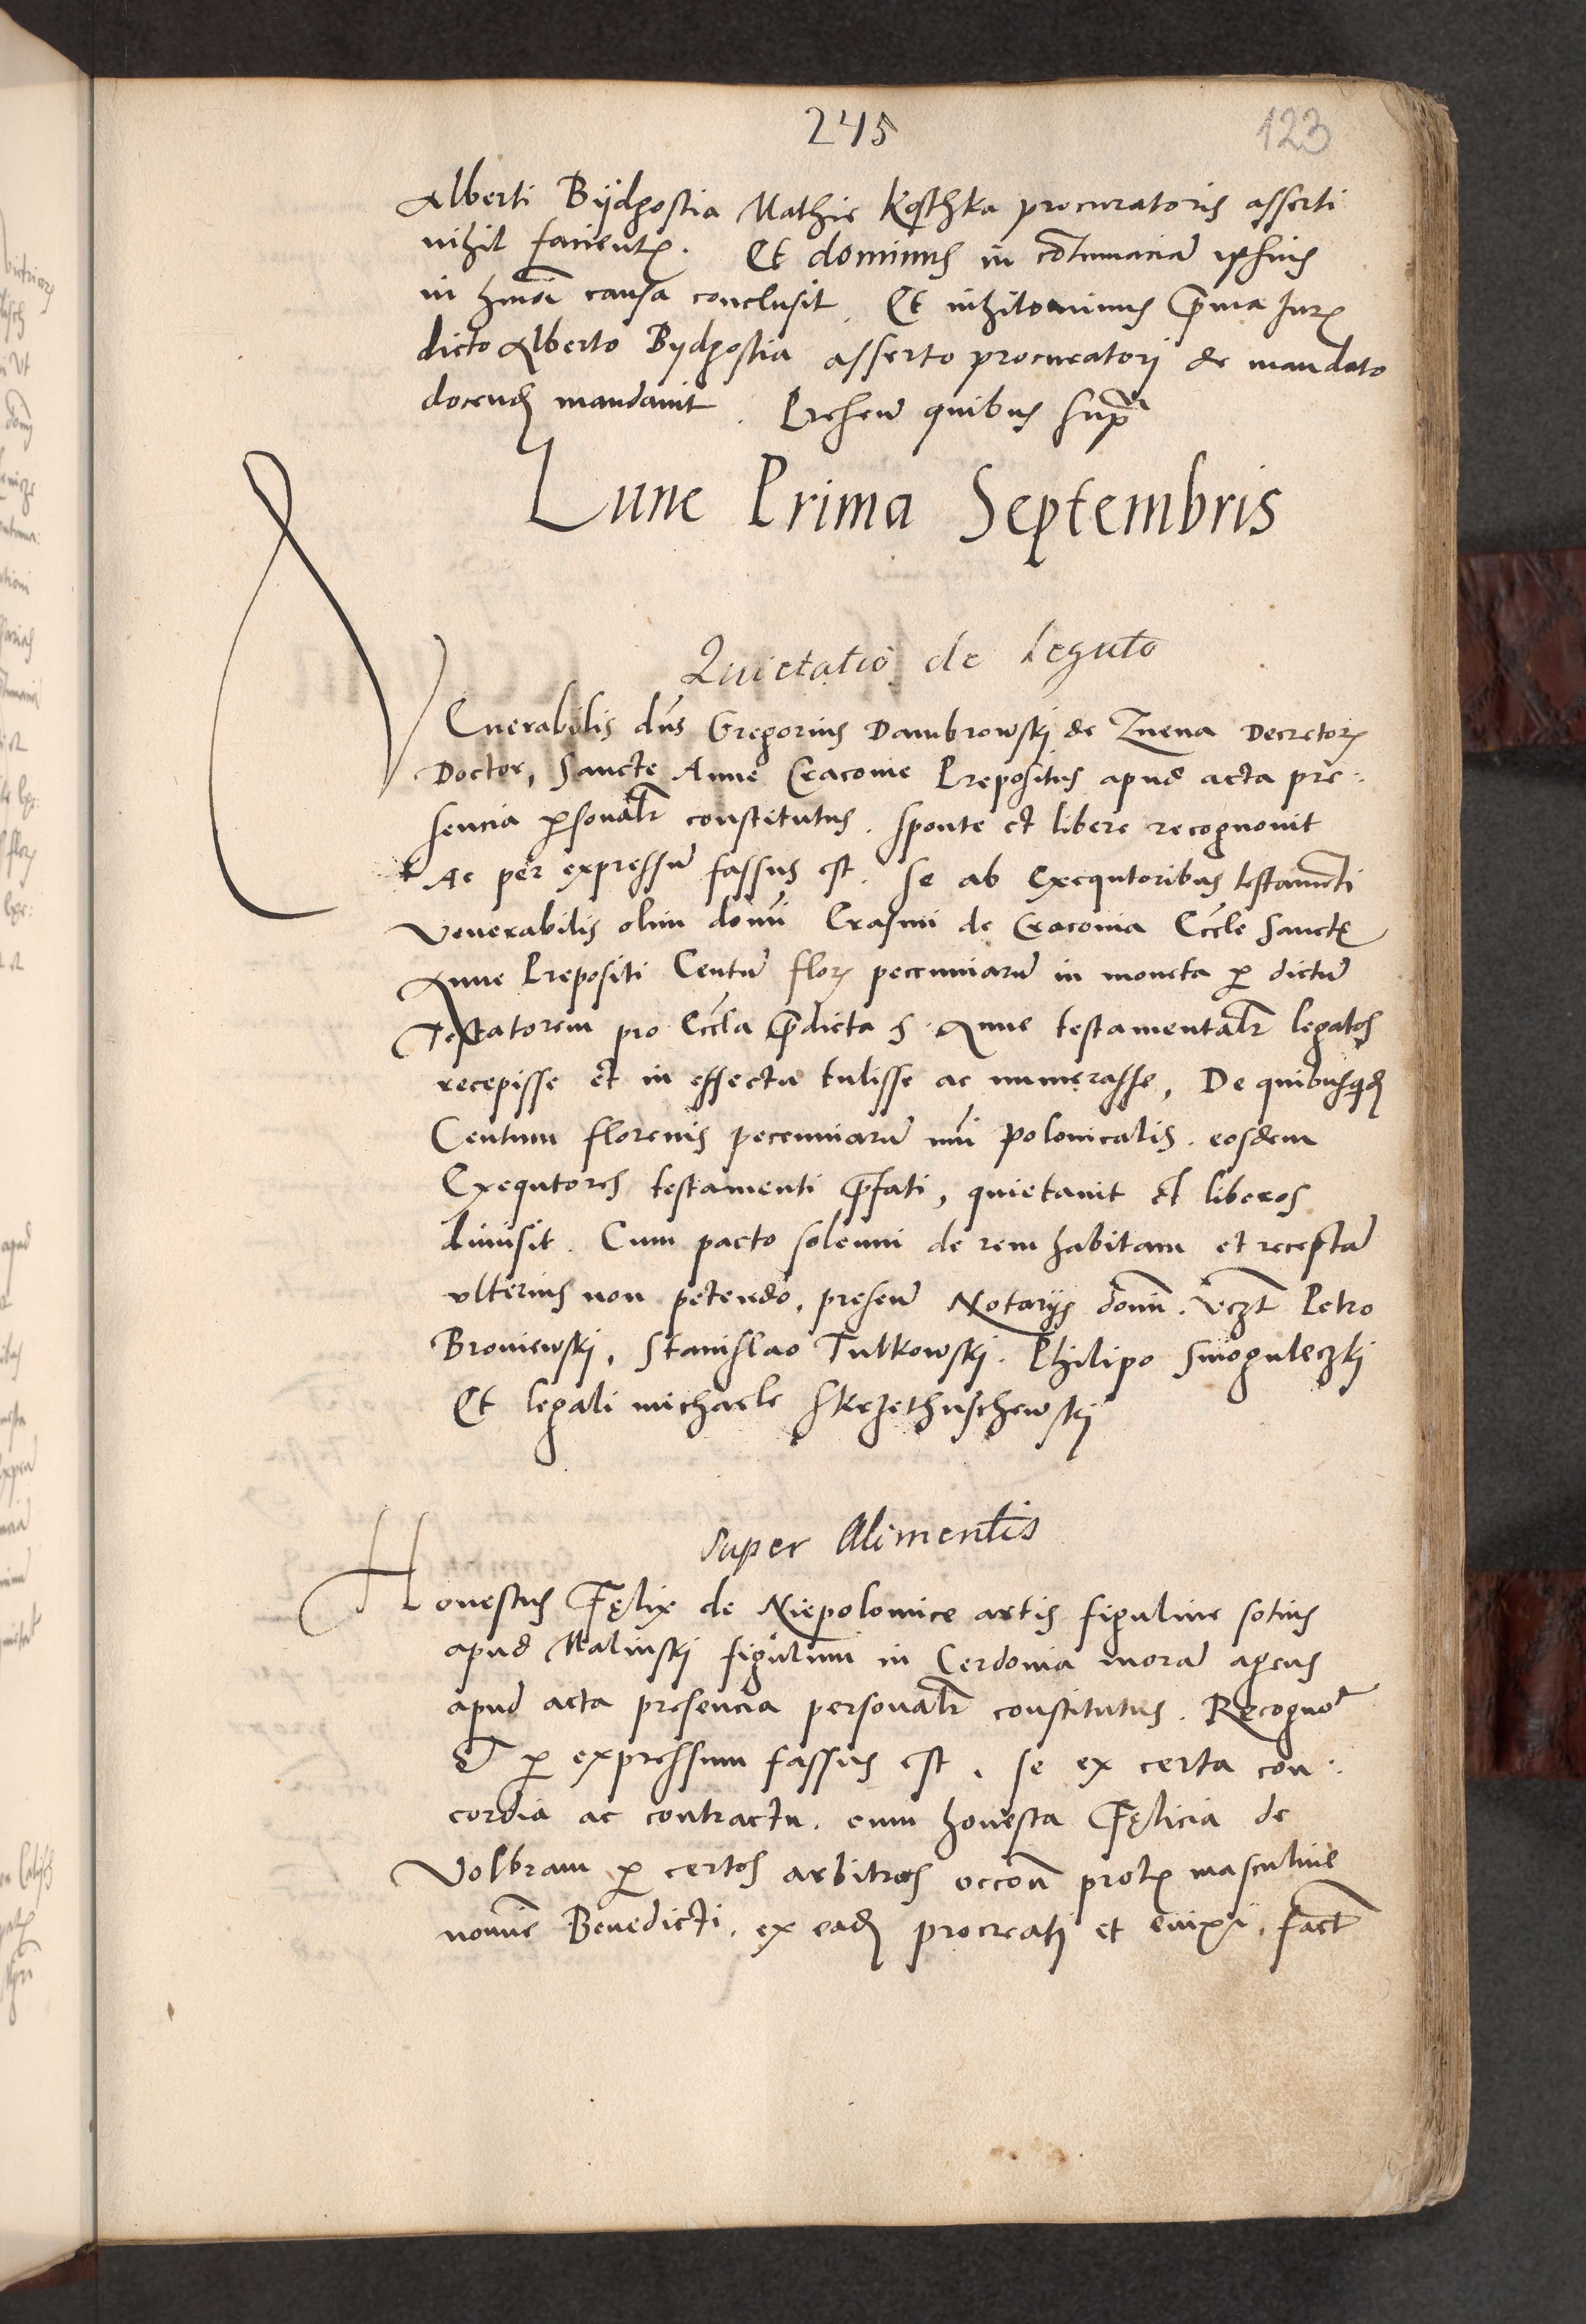 245
123
Alberti Bijdgostia Mathie Kosthka procuratoris asserti
nihil facient. Et dominus in cōtumaciā ipsius
in hmōi causa conclusit. Et nihilominus p̄ma Jur
dicto Alberto Bydgostia asserto procuratori de mandato
docend mandavit. Presen̄ quibus supra
Lune Prima Septembris
Quietatio de legato
Venerabilis dn̄s Gregorius Dambrowskj de Znena Decretor
Doctor, Sancte Anne Cracovie Prepositus apud acta pre-
sencia p̱sonalr̄ constitutus. sponte et libere recognovit
Ac per expressū fassus est. se ab Execqutoribus testamēti
Venerabilis olim domi Erasmi de Cracovia Eccle Sancte
Anne Prepositi Centū flor pecunniarū in moneta p̱ dictū
Testatorem pro Eccla p̄dicta S. Anne testamentalr̄ legatos
recepisse et in effectu tulisse ac numerasse, De quibusqd
Centum florenis pecunniarū nūi polonicalis. eosdem
Exequtores testamenti p̄fati, quietavit et liberos
dimisit. Cum pacto solenni de rem habitam et receptā
ulterius non petendo. presen̄ Notarijs domī. vczt Petro
Broniewskj, Stanislao Tulkowskj. Philipo Smoguleczkj
Et legali michaele Skrzethuschewskj
Super Alimentis
Honestus Felix de Niepolomice artis figuline sotius
apud Malinskj figulum in Cerdonia morā agens
apud acta presencia personalr̄ constitutus. Recogno
Et p̱ expressum fassus est. se ex certa con-
cordia ac contractu. cum honesta Felicia de
Volbram p̱ certos arbitros occon̄ prol masculine
nomīe Benedicti. ex ead procreatj et enixi. fact